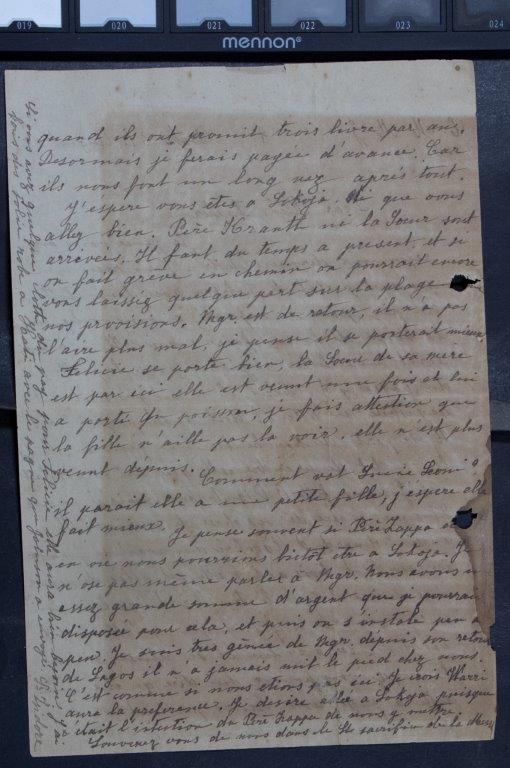 019 020 021 022 023 024
mennon
quand ils ont promit trois livre par an.
Desormais je ferais payee d'avance. Car
ils nous font un long nez après tout.
J'espere vous êtes a Lokoja. Ni que vous
allez bien. Père Kranth ni la Soeur sont
arrivées. Il fant du temps a present, et si
on fait grève en chemin on pourrait encore
vous laissez quelque pert sur la plage
nos provoisions. Mgr. est de retour, il n'a pas
l'aire plus mal, je pense il se porterait mieux.
Felicie se porte bien, la Soeur de sa mere
est par ici elle est venut une fois et lui
a porté du poisson, je fais attention que
la fille n'aille pas la voir, elle n'est plus
venut dépuis. Comment vat Lucie Leoni?
il parait elle a une petite fille, j'éspère elle
fait mieux. Je pense souvent si Père Zappa
en vie nous pourrions bietot etre a Lokoja. Je
n'ose pas même parler a Mgr. Nous avons
assez grande somme d'argent que je pourrai
disposée pour cela, et puis on s'instale pen a
pen. Je suis tres génée de Mgr. depuis son retour
de Lagos il n'a jamais mit le pied chez nous.
C'est comme si nous etions pas ici. Je crois Warri
aura la preference. Je desire allée a Lokoja puisque
c'était l'intention du Père Zappa de nous y mettre.
Souvenez vous de nous dans le St sacrifice de la Messe
Si vous avez quelque pour Felicie elle aura
fois une jolie robe a